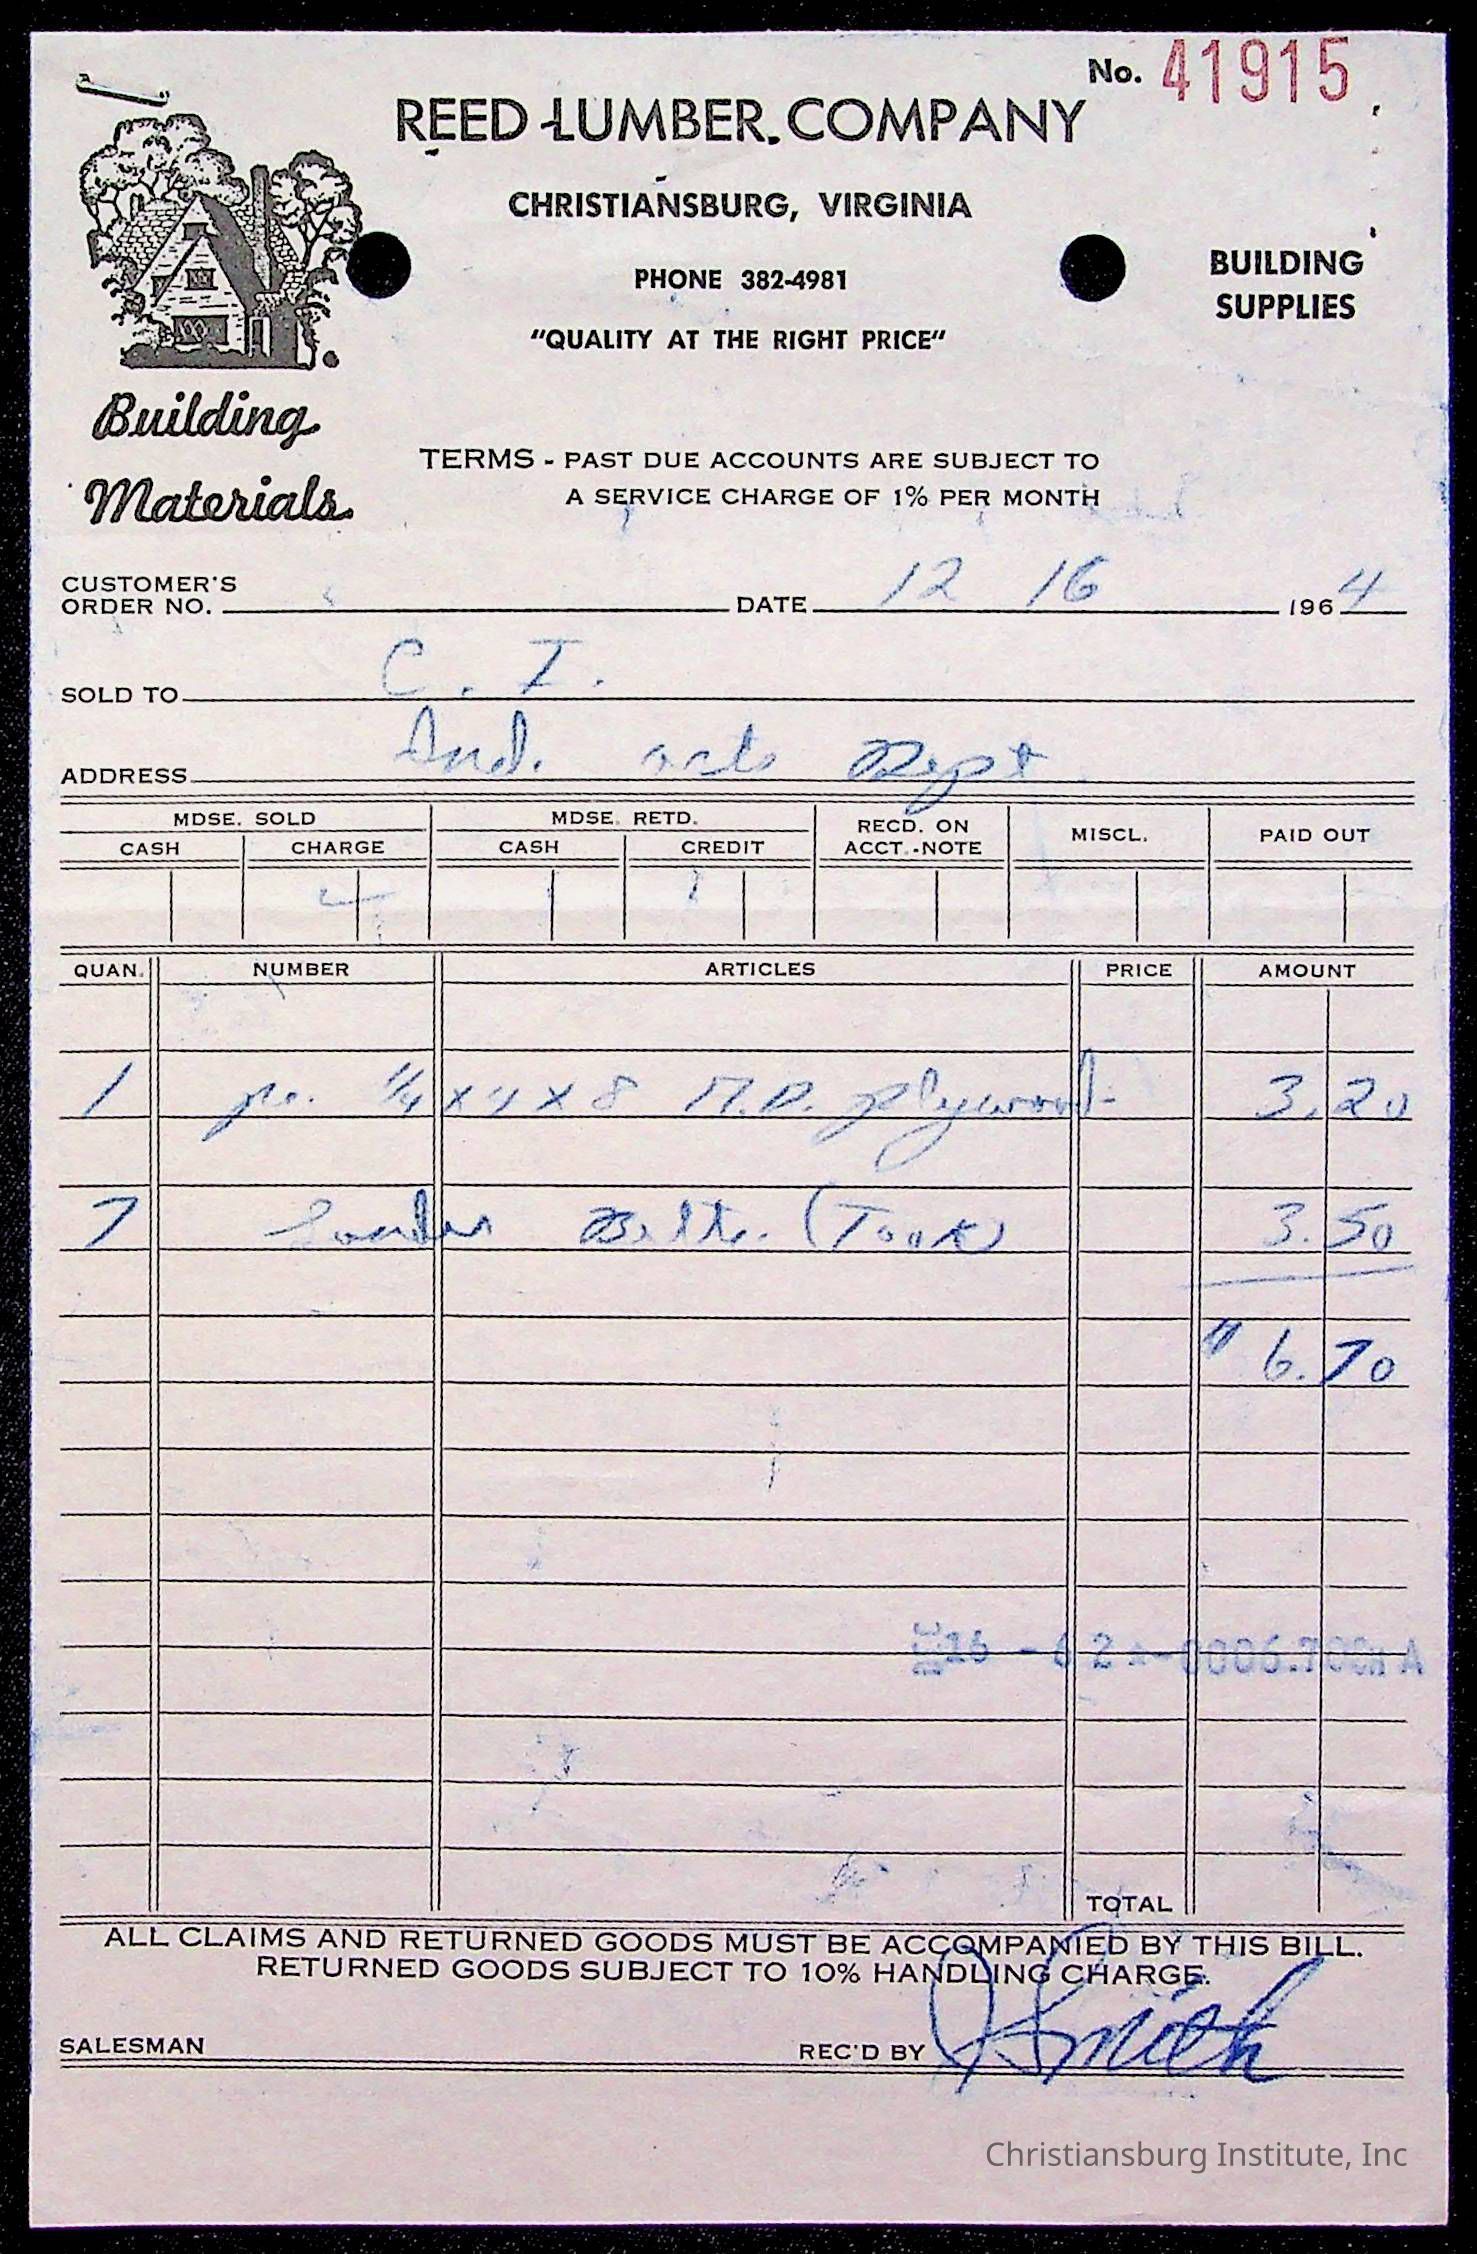 No. 41915
REED LUMBER COMPANY
CHRISTIANSBURG, VIRGINIA
PHONE 382-4981
"QUALITY AT THE RIGHT PRICE"
BUILDING
SUPPLIES
Building
Materials
TERMS - PAST DUE ACCOUNTS ARE SUBJECT TO
A SERVICE CHARGE OF 1% PER MONTH
CUSTOMER'S
ORDER NO. DATE 12 16 1964
SOLD TO C. I.
ADDRESS Ind. arts Dept
MDSE. SOLD MDSE. RETD. RECD. ON ACCT.-NOTE MISCL. PAID OUT
CASH CHARGE CASH CREDIT
QUAN. NUMBER ARTICLES PRICE AMOUNT
1 pc. 1/4 x 4 x 8 plywood 3.20
7 Sander Belts. (Took) 3.50
$ 6.70
16 - 6 2 0006.70
TOTAL
ALL CLAIMS AND RETURNED GOODS MUST BE ACCOMPANIED BY THIS BILL.
RETURNED GOODS SUBJECT TO 10% HANDLING CHARGE.
SALESMAN REC'D BY J Smith
Christiansburg Institute, Inc